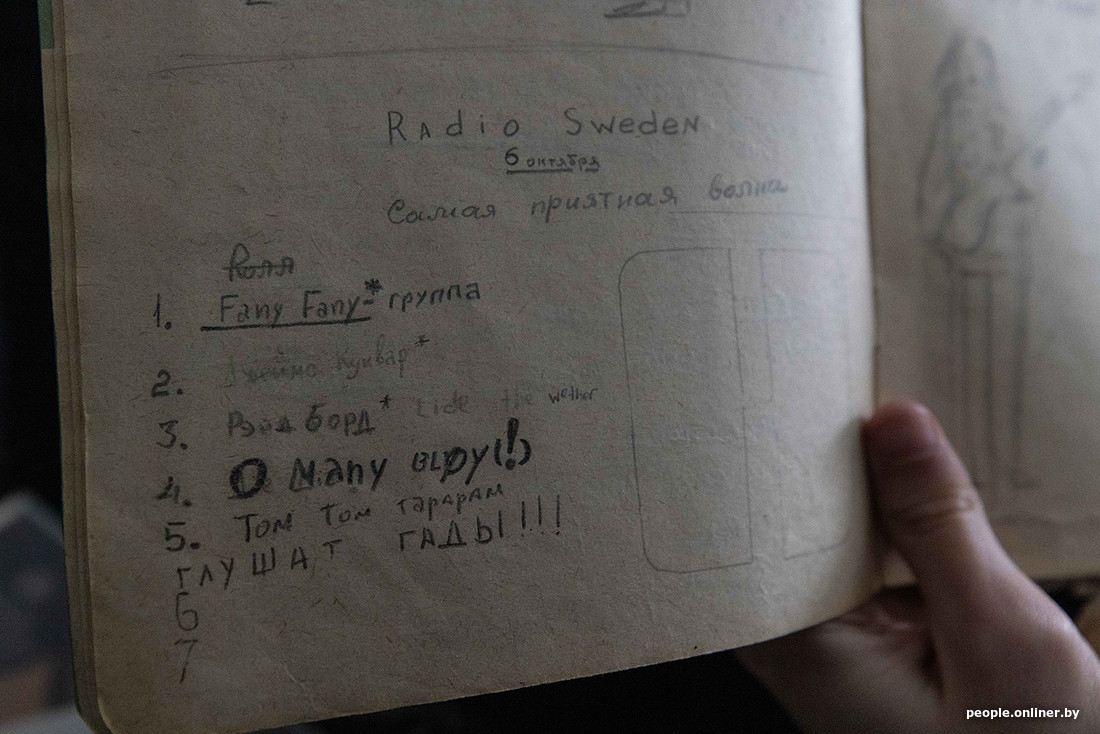 Radio Sweden
6 октября
Самая приятная волна
Коля
1. Fany Fany-* группа
2. Джеймс Куквар*
3. Рэд борд* tide the wether
4. О Many вUру(!)
5. Том Том тарарам
ГЛУШАТ ГАДЫ!!!
6
7
people.onliner.by